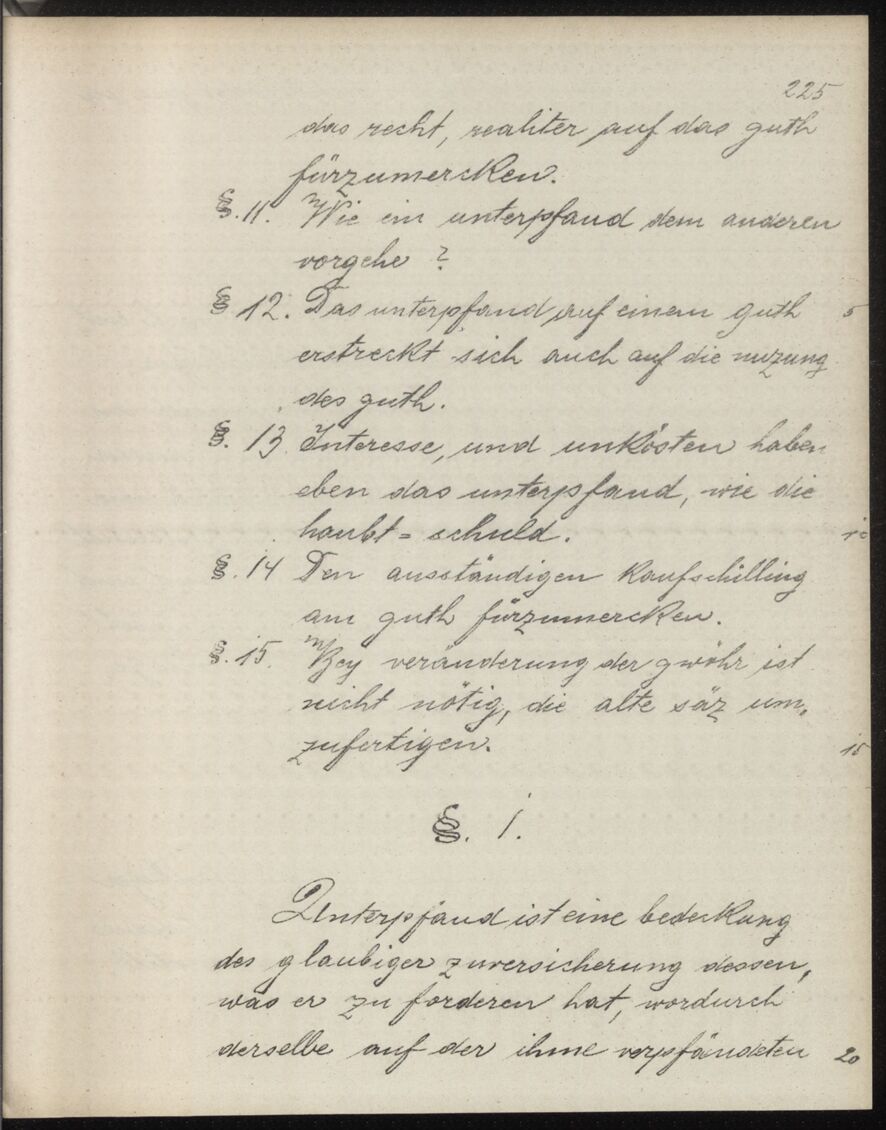 225
das recht, realiter auf das guth
fürzumercken.
§. 11. Wie ein unterpfand dem anderen
vorgehe ?
§ 12. Das unterpfand auf einem guth 5
erstreckt sich auch auf die nuzung
des guth.
§. 13 Interesse, und unkösten haben
eben das unterpfand, wie die
haubt = schuld. 10
§. 14 Den ausständigen Kaufschilling
am guth fürzumercken.
§. 15. Bey veränderung der gwöhr ist
nicht nötig, die alte säz um,
zufertigen. 15
§. 1.
Unterpfand ist eine bedeckung
des glaubiger zuversicherung dessen,
was er zu forderen hat, wordurch
derselbe auf der ihme verpfändeten 20